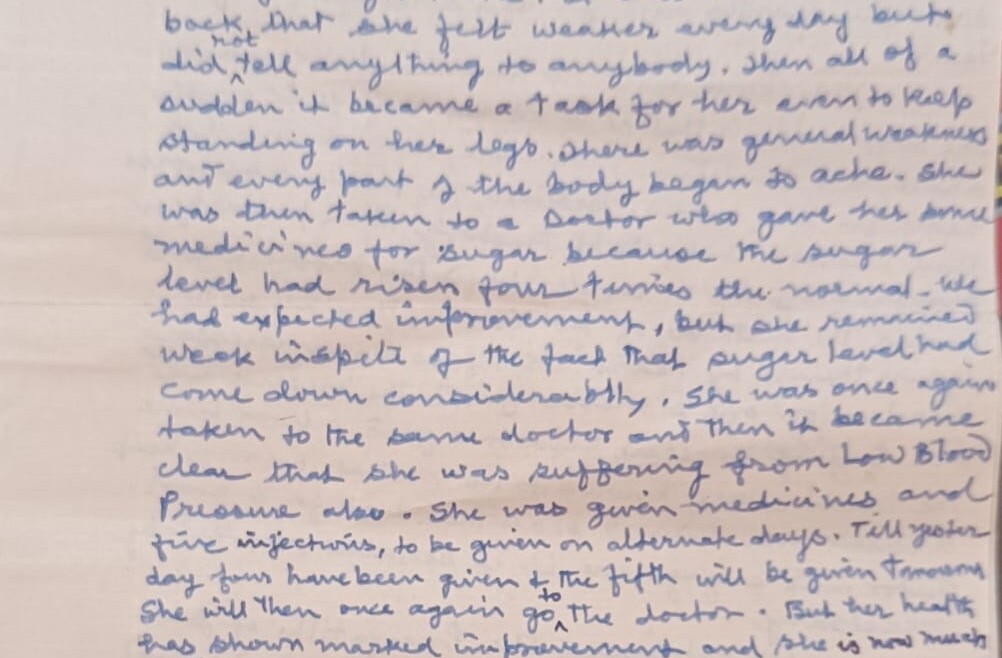 back, that she felt weaker every day but
did not tell anything to anybody. Then all of a
sudden it became a task for her even to keep
standing on her legs. There was general weakness
and every part of the body began to ache. She
was then taken to a Doctor who gave her some
medicines for sugar because the sugar
level had risen four times the normal. We
had expected improvement, but she remained
weak inspite of the fact that sugar level had
come down considerably. She was once again
taken to the same doctor and then it became
clear that she was suffering from Low Blood
Pressure also. She was given medicines and
five injections, to be given on alternate days. Till yester
day four have been given & the fifth will be given tomorrow
She will then once again go to the doctor. But her health
has shown marked improvement and she is now much